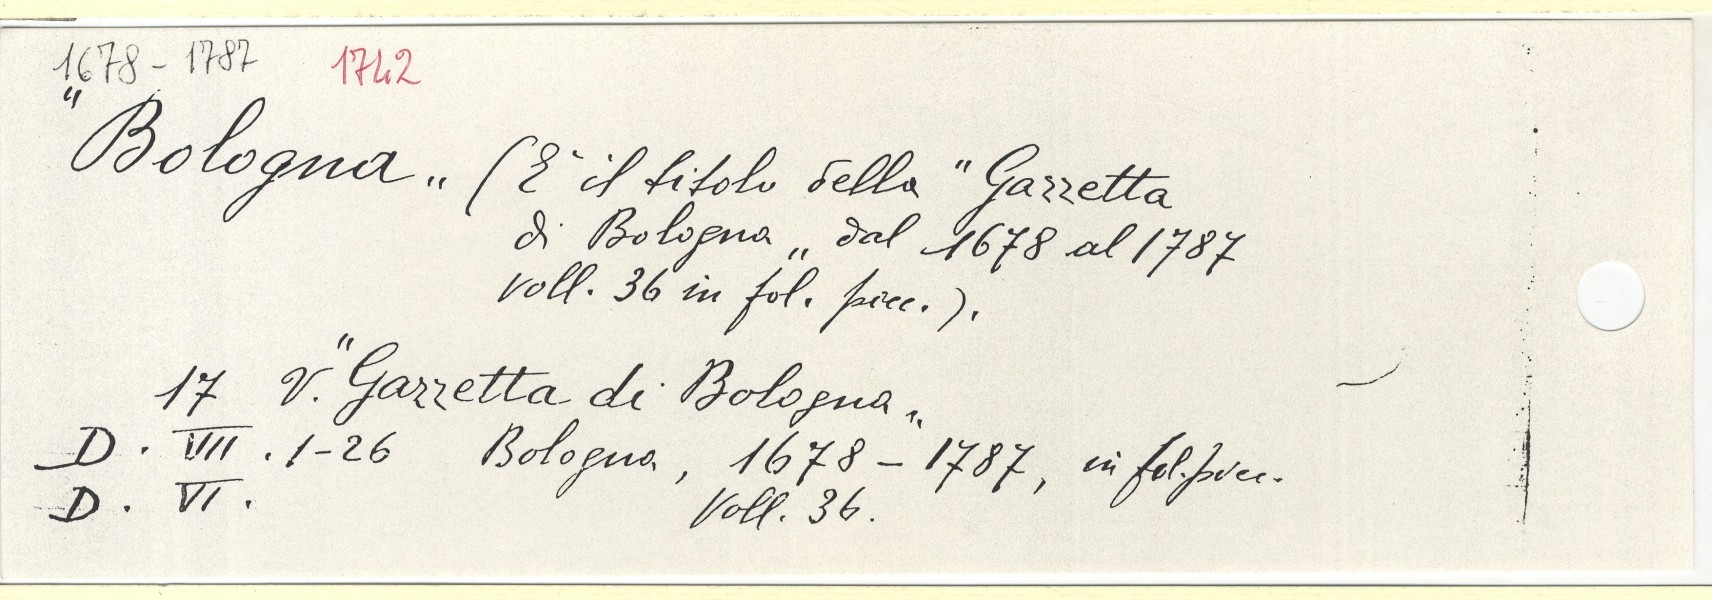 1678 - 1787 1742
"Bologna„ (È il titolo della "Gazzetta
di Bologna„ dal 1678 al 1787
voll. 36 in fol. picc.).
17 V. "Gazzetta di Bologna„
D. VIII. 1-26 Bologna, 1678-1787, in fol. picc.
D. VI. Voll. 36.